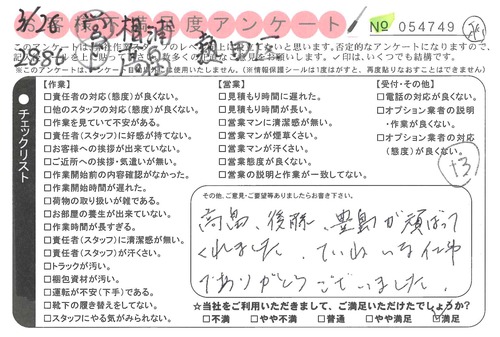 お客様満足度アンケート
№ 054749
3/26
2886
相浦
高島
✓印は、いくつでも結構です。
※このアンケートは、
(※情報保護シールは1度がすと、再度貼りなおすことはできません)
チェックリスト
【作業】
□責任者の対応(態度)が良くない。
□他のスタッフの対応(態度)が良くない。
□作業を見ていて不安がある。
□責任者(スタッフ)に好感が持てない。
□お客様への挨拶が出来ていない。
□ご近所への挨拶・気遣いが無い。
□作業開始前の内容確認がなかった。
□作業開始時間が遅れた。
□荷物の取り扱いが雑である。
□お部屋の養生が出来ていない。
□作業時間が長すぎる。
□責任者(スタッフ)に清潔感が無い。
□責任者(スタッフ)が汗くさい。
□トラックが汚い。
□梱包資材が汚い。
□運転が不安(下手)である。
□靴下の履き替えをしてない。
□スタッフにやる気がみられない。
【営業】
□見積もり時間に遅れた。
□見積もり時間が長い。
□営業マンに清潔感が無い。
□営業マンが煙草くさい。
□営業マンが汗くさい。
□営業態度が良くない。
□営業の説明と作業が一致してない。
【受付・その他】
□電話の対応が良くない。
□オプション業者の説明
・作業が良くない。
□オプション業者の対応
(態度)が良くない。
+3
その他、ご意見・ご要望等ありましたらお書き下さい。
高島、後藤、豊島が頑ばって
くれました。ていねいな仕事
でありがとうございました。
☆当社をご利用いただきまして、ご満足いただけたでしょうか?
□不満 □やや不満 □普通 □やや満足 ☑満足